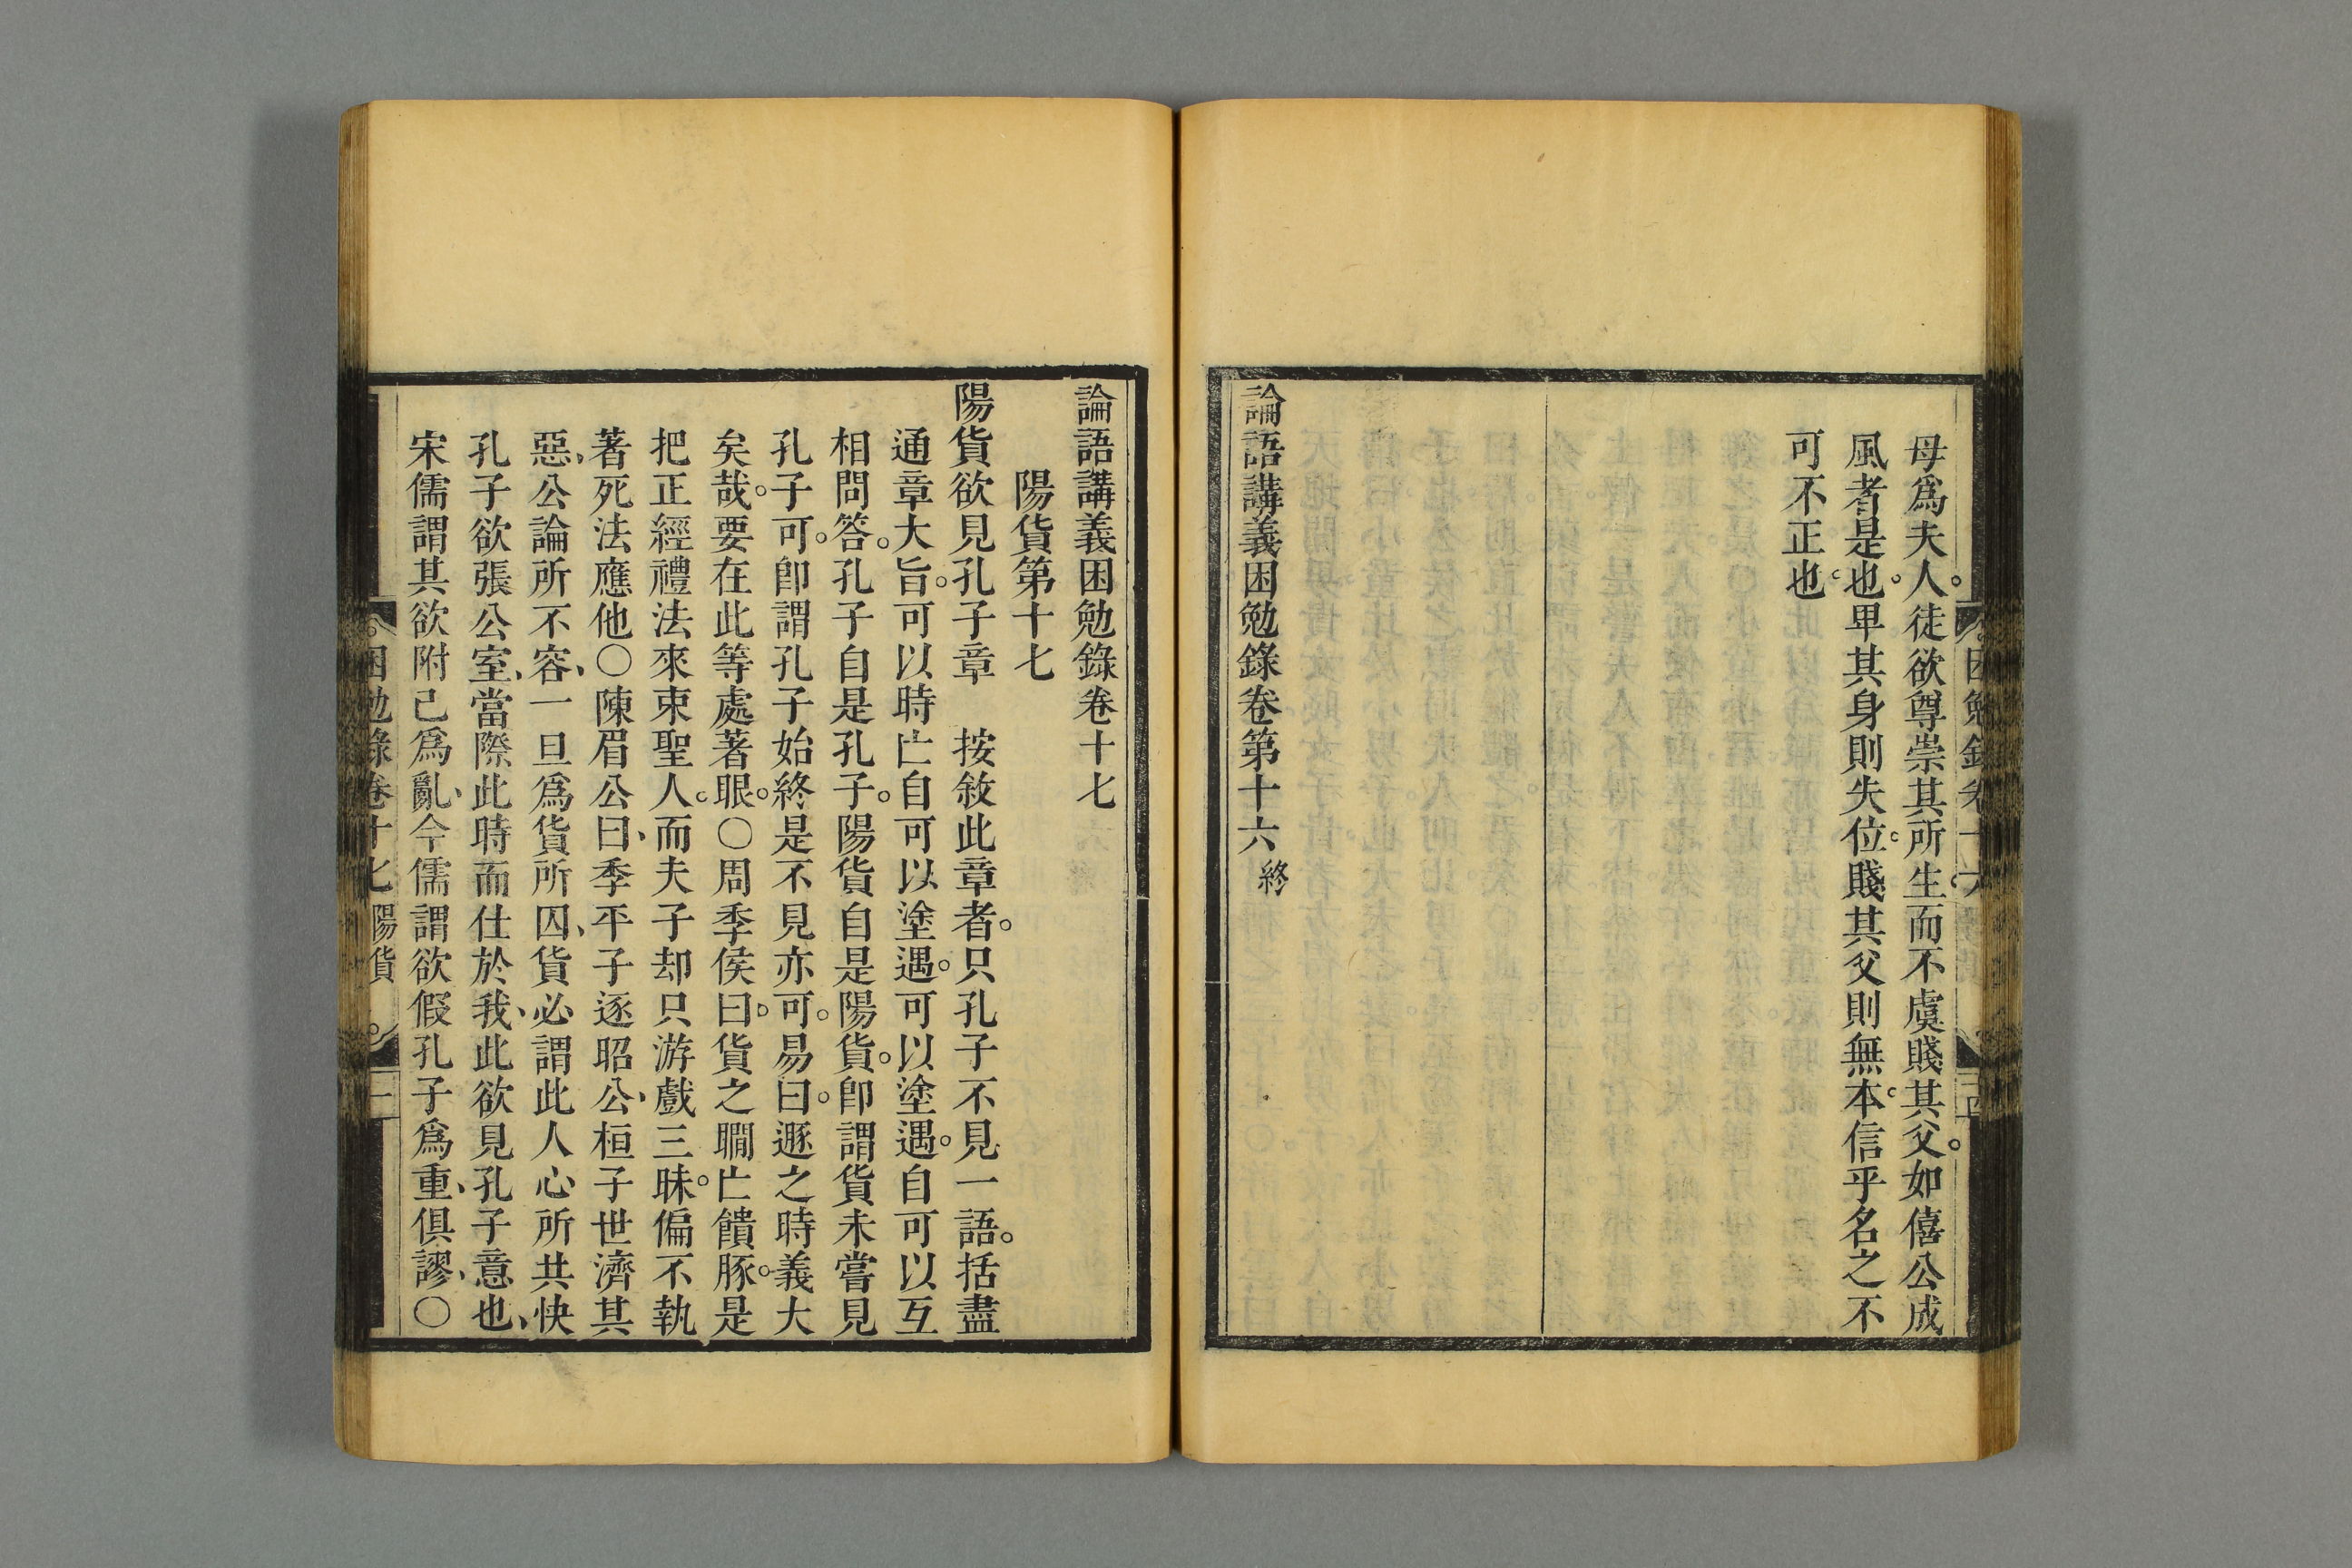 母爲夫人。徒欲尊崇其所生而不虞賤其父。如僖公成
風者是也。卑其身則失位。賤其父則無本。信乎名之不
可不正也。
論語講義困勉錄卷第十六終
論語講義困勉錄卷十七
陽貨第十七
陽貨欲見孔子章　按敘此章者。只孔子不見一語。括盡
通章大旨。可以時亾自可以塗遇。可以塗遇。自可以互
相問答。孔子自是孔子。陽貨自是陽貨。卽謂貨未嘗見
孔子可。卽謂孔子始終是不見亦可。易曰。遯之時義大
矣哉。要在此等處著眼。○周季侯曰。貨之瞯亾饋豚。是
把正經禮法來束聖人。而夫子却只游戲三昧。偏不執
著死法應他○陳眉公曰、季平子逐昭公、桓子世濟其
惡、公論所不容、一旦爲貨所囚、貨必謂此人心所共快
孔子欲張公室、當際此時而仕於我、此欲見孔子意也、
宋儒謂其欲附己爲亂、今儒謂欲假孔子爲重、俱謬、○
困勉錄卷十七　陽貨　一